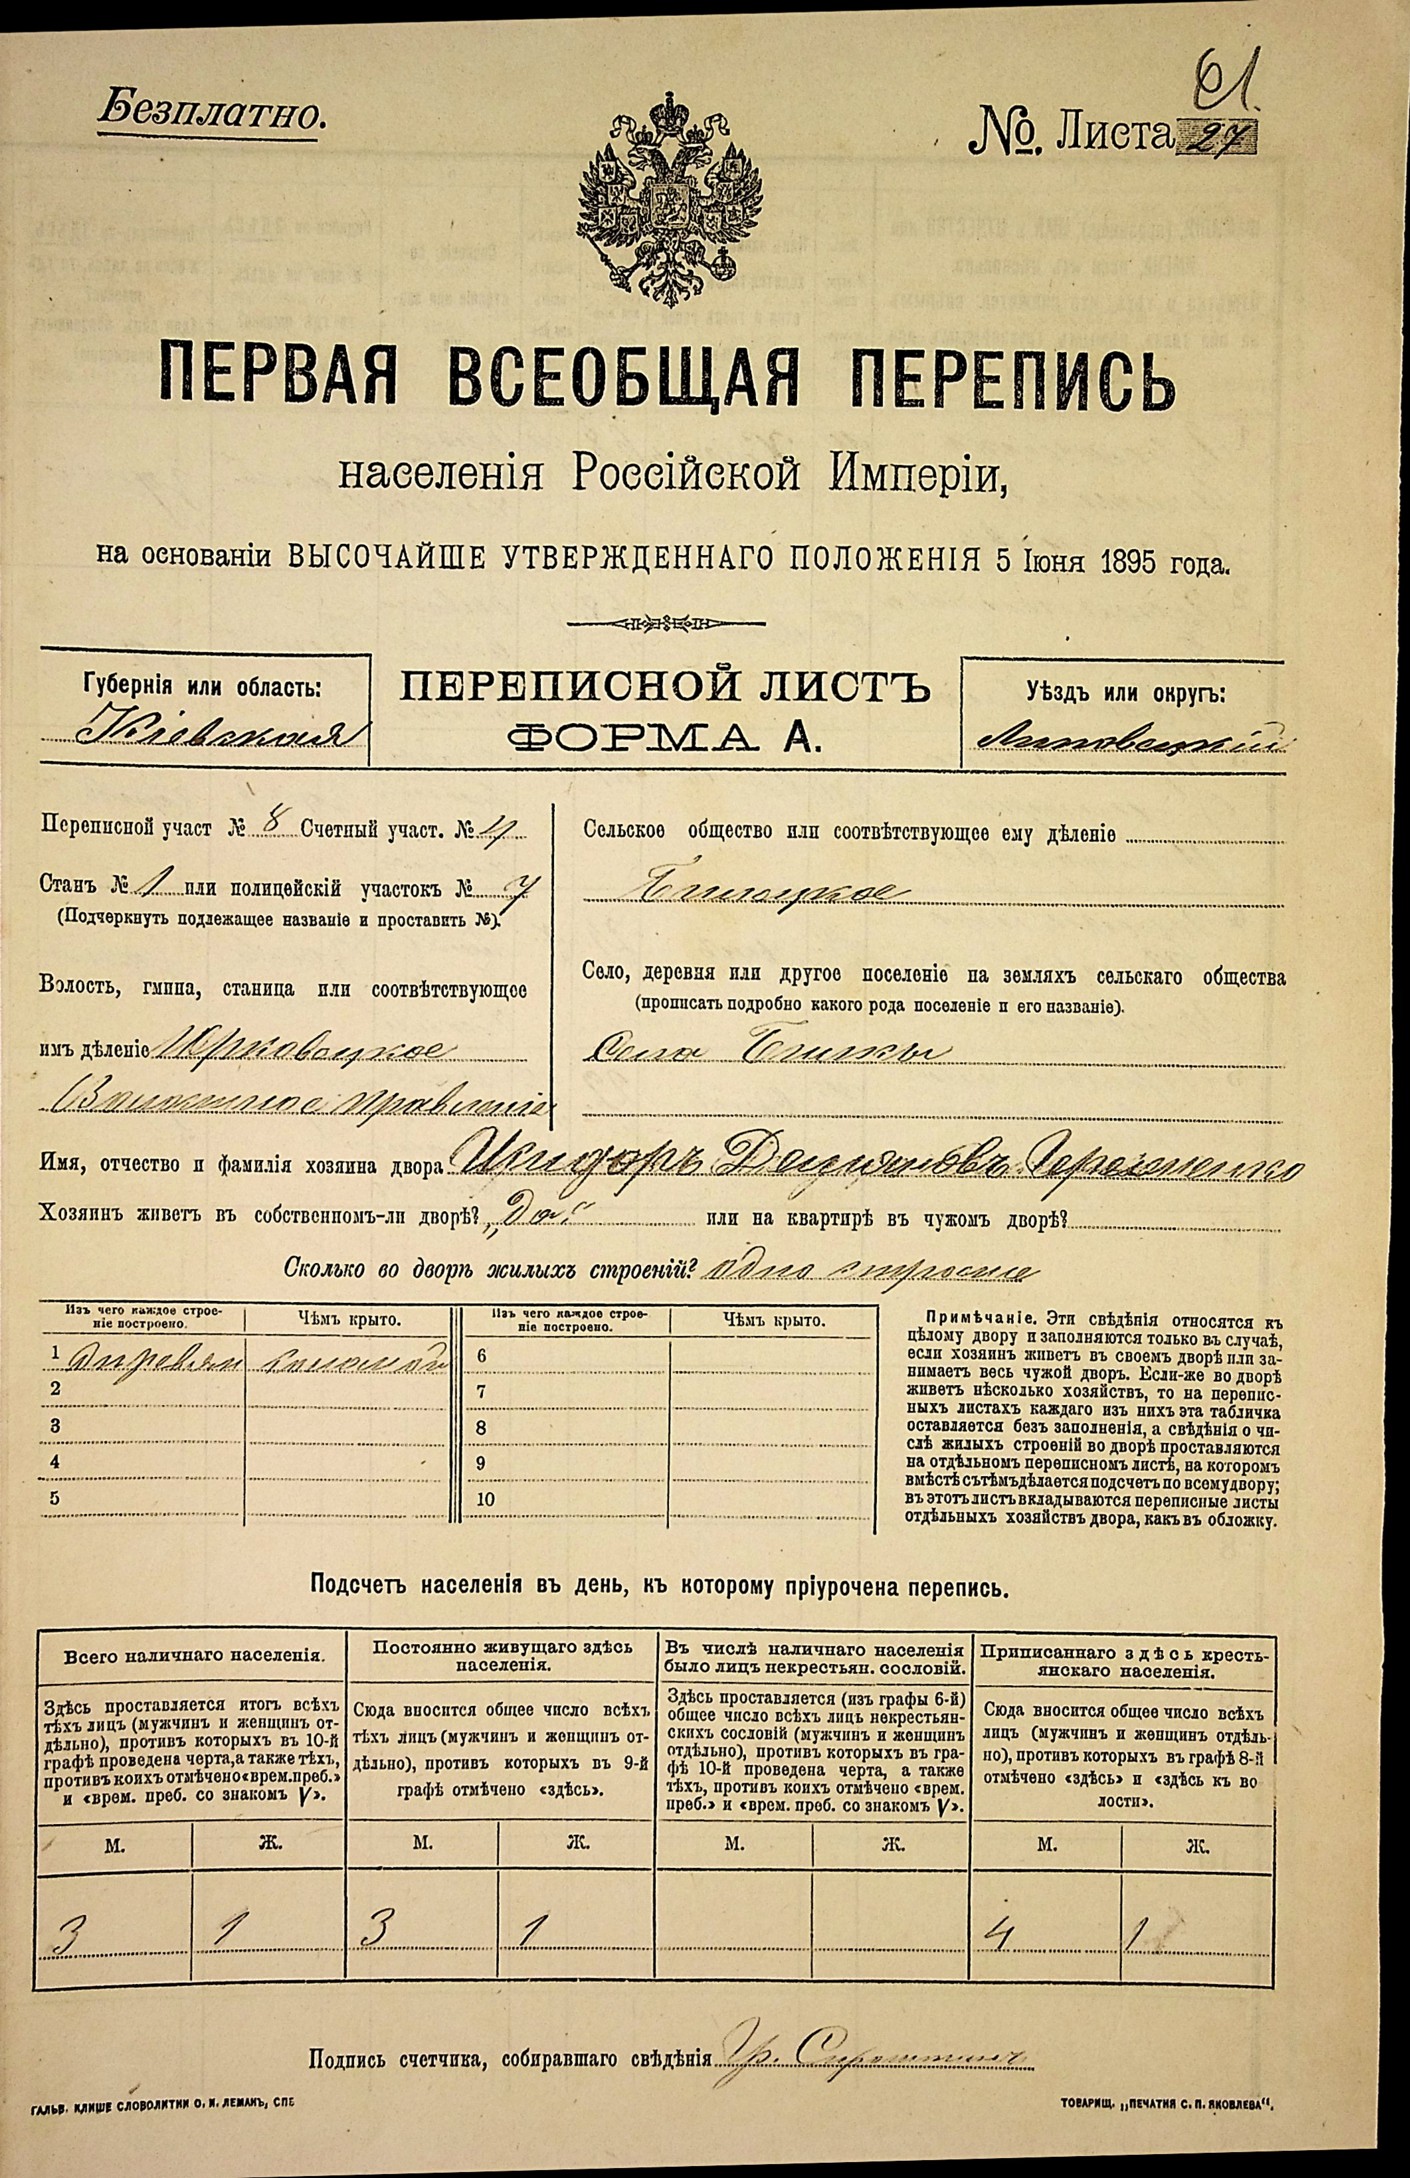 Безплатно.
61.
№. Листа 27
ПЕРВАЯ ВСЕОБЩАЯ ПЕРЕПИСЬ
населенія Россійской Имперіи,
на основаніи ВЫСОЧАЙШЕ УТВЕРЖДЕННАГО ПОЛОЖЕНІЯ 5 Іюня 1895 года.
Губернія или область:
Кіевская
ПЕРЕПИСНОЙ ЛИСТЪ
ФОРМА А.
Уѣздъ или округъ:
Липовецкій
Переписной участ № 8 Счетный участ. № 4
Станъ № 1 или полицейскій участокъ № 7
(Подчеркнуть подлежащее названіе и проставить №).
Волость, гмина, станица или соотвѣтствующее
имъ дѣленіе Юрковецкое
Волостное правленіе
Сельское общество или соотвѣтствующее ему дѣленіе
Село, деревня или другое поселеніе на земляхъ сельскаго общества
(прописать подробно какого рода поселеніе и его названіе).
Села
Имя, отчество и фамилія хозяина двора
Хозяинъ живетъ въ собственномъ-ли дворѣ? „Да“ или на квартирѣ въ чужомъ дворѣ?
Сколько во дворѣ жилыхъ строеній? одно строеніе
Изъ чего каждое строе-
ніе построено.
Чѣмъ крыто.
Изъ чего каждое строе-
ніе построено.
Чѣмъ крыто.
1 диревян соломой 6
2 7
3 8
4 9
5 10
Примѣчаніе. Эти свѣдѣнія относятся къ
цѣлому двору и заполняются только въ случаѣ,
если хозяинъ живетъ въ своемъ дворѣ или за-
нимаетъ весь чужой дворъ. Если-же во дворѣ
живетъ нѣсколько хозяйствъ, то на перепис-
ныхъ листахъ каждаго изъ нихъ эта табличка
оставляется безъ заполненія, а свѣдѣнія о чи-
слѣ жилыхъ строеній во дворѣ проставляются
на отдѣльномъ переписномъ листѣ, на которомъ
вмѣстѣ съ тѣмъ дѣлается подсчетъ по всему двору;
въ этотъ листъ вкладываются переписные листы
отдѣльныхъ хозяйствъ двора, какъ въ обложку.
Подсчетъ населенія въ день, къ которому пріурочена перепись.
Всего наличнаго населенія.
Здѣсь проставляется итогъ всѣхъ
тѣхъ лицъ (мужчинъ и женщинъ от-
дѣльно), противъ которыхъ въ 10-й
графѣ проведена черта, а также тѣхъ,
противъ коихъ отмѣчено «врем. преб.»
и «врем. преб. со знакомъ V».
М. Ж.
3 1
Постоянно живущаго здѣсь
населенія.
Сюда вносится общее число всѣхъ
тѣхъ лицъ (мужчинъ и женщинъ от-
дѣльно), противъ которыхъ въ 9-й
графѣ отмѣчено «здѣсь».
М. Ж.
3 1
Въ числѣ наличнаго населенія
было лицъ некрестьян. сословій.
Здѣсь проставляется (изъ графы 6-й)
общее число всѣхъ лицъ некрестьян-
скихъ сословій (мужчинъ и женщинъ
отдѣльно), противъ которыхъ въ гра-
фѣ 10-й проведена черта, а также
тѣхъ, противъ коихъ отмѣчено «врем.
преб.» и «врем. преб. со знакомъ V».
М. Ж.
Приписаннаго здѣсь кресть-
янскаго населенія.
Сюда вносится общее число всѣхъ
лицъ (мужчинъ и женщинъ отдѣль-
но), противъ которыхъ въ графѣ 8-й
отмѣчено «здѣсь» и «здѣсь къ во
лости».
М. Ж.
4 1
Подпись счетчика, собиравшаго свѣдѣнія
ГАЛЬВ. КЛИШЕ СЛОВОЛИТНИ О. И. ЛЕМАНЪ, СПБ
ТОВАРИЩ. „ПЕЧАТНЯ С. П. ЯКОВЛЕВА“.